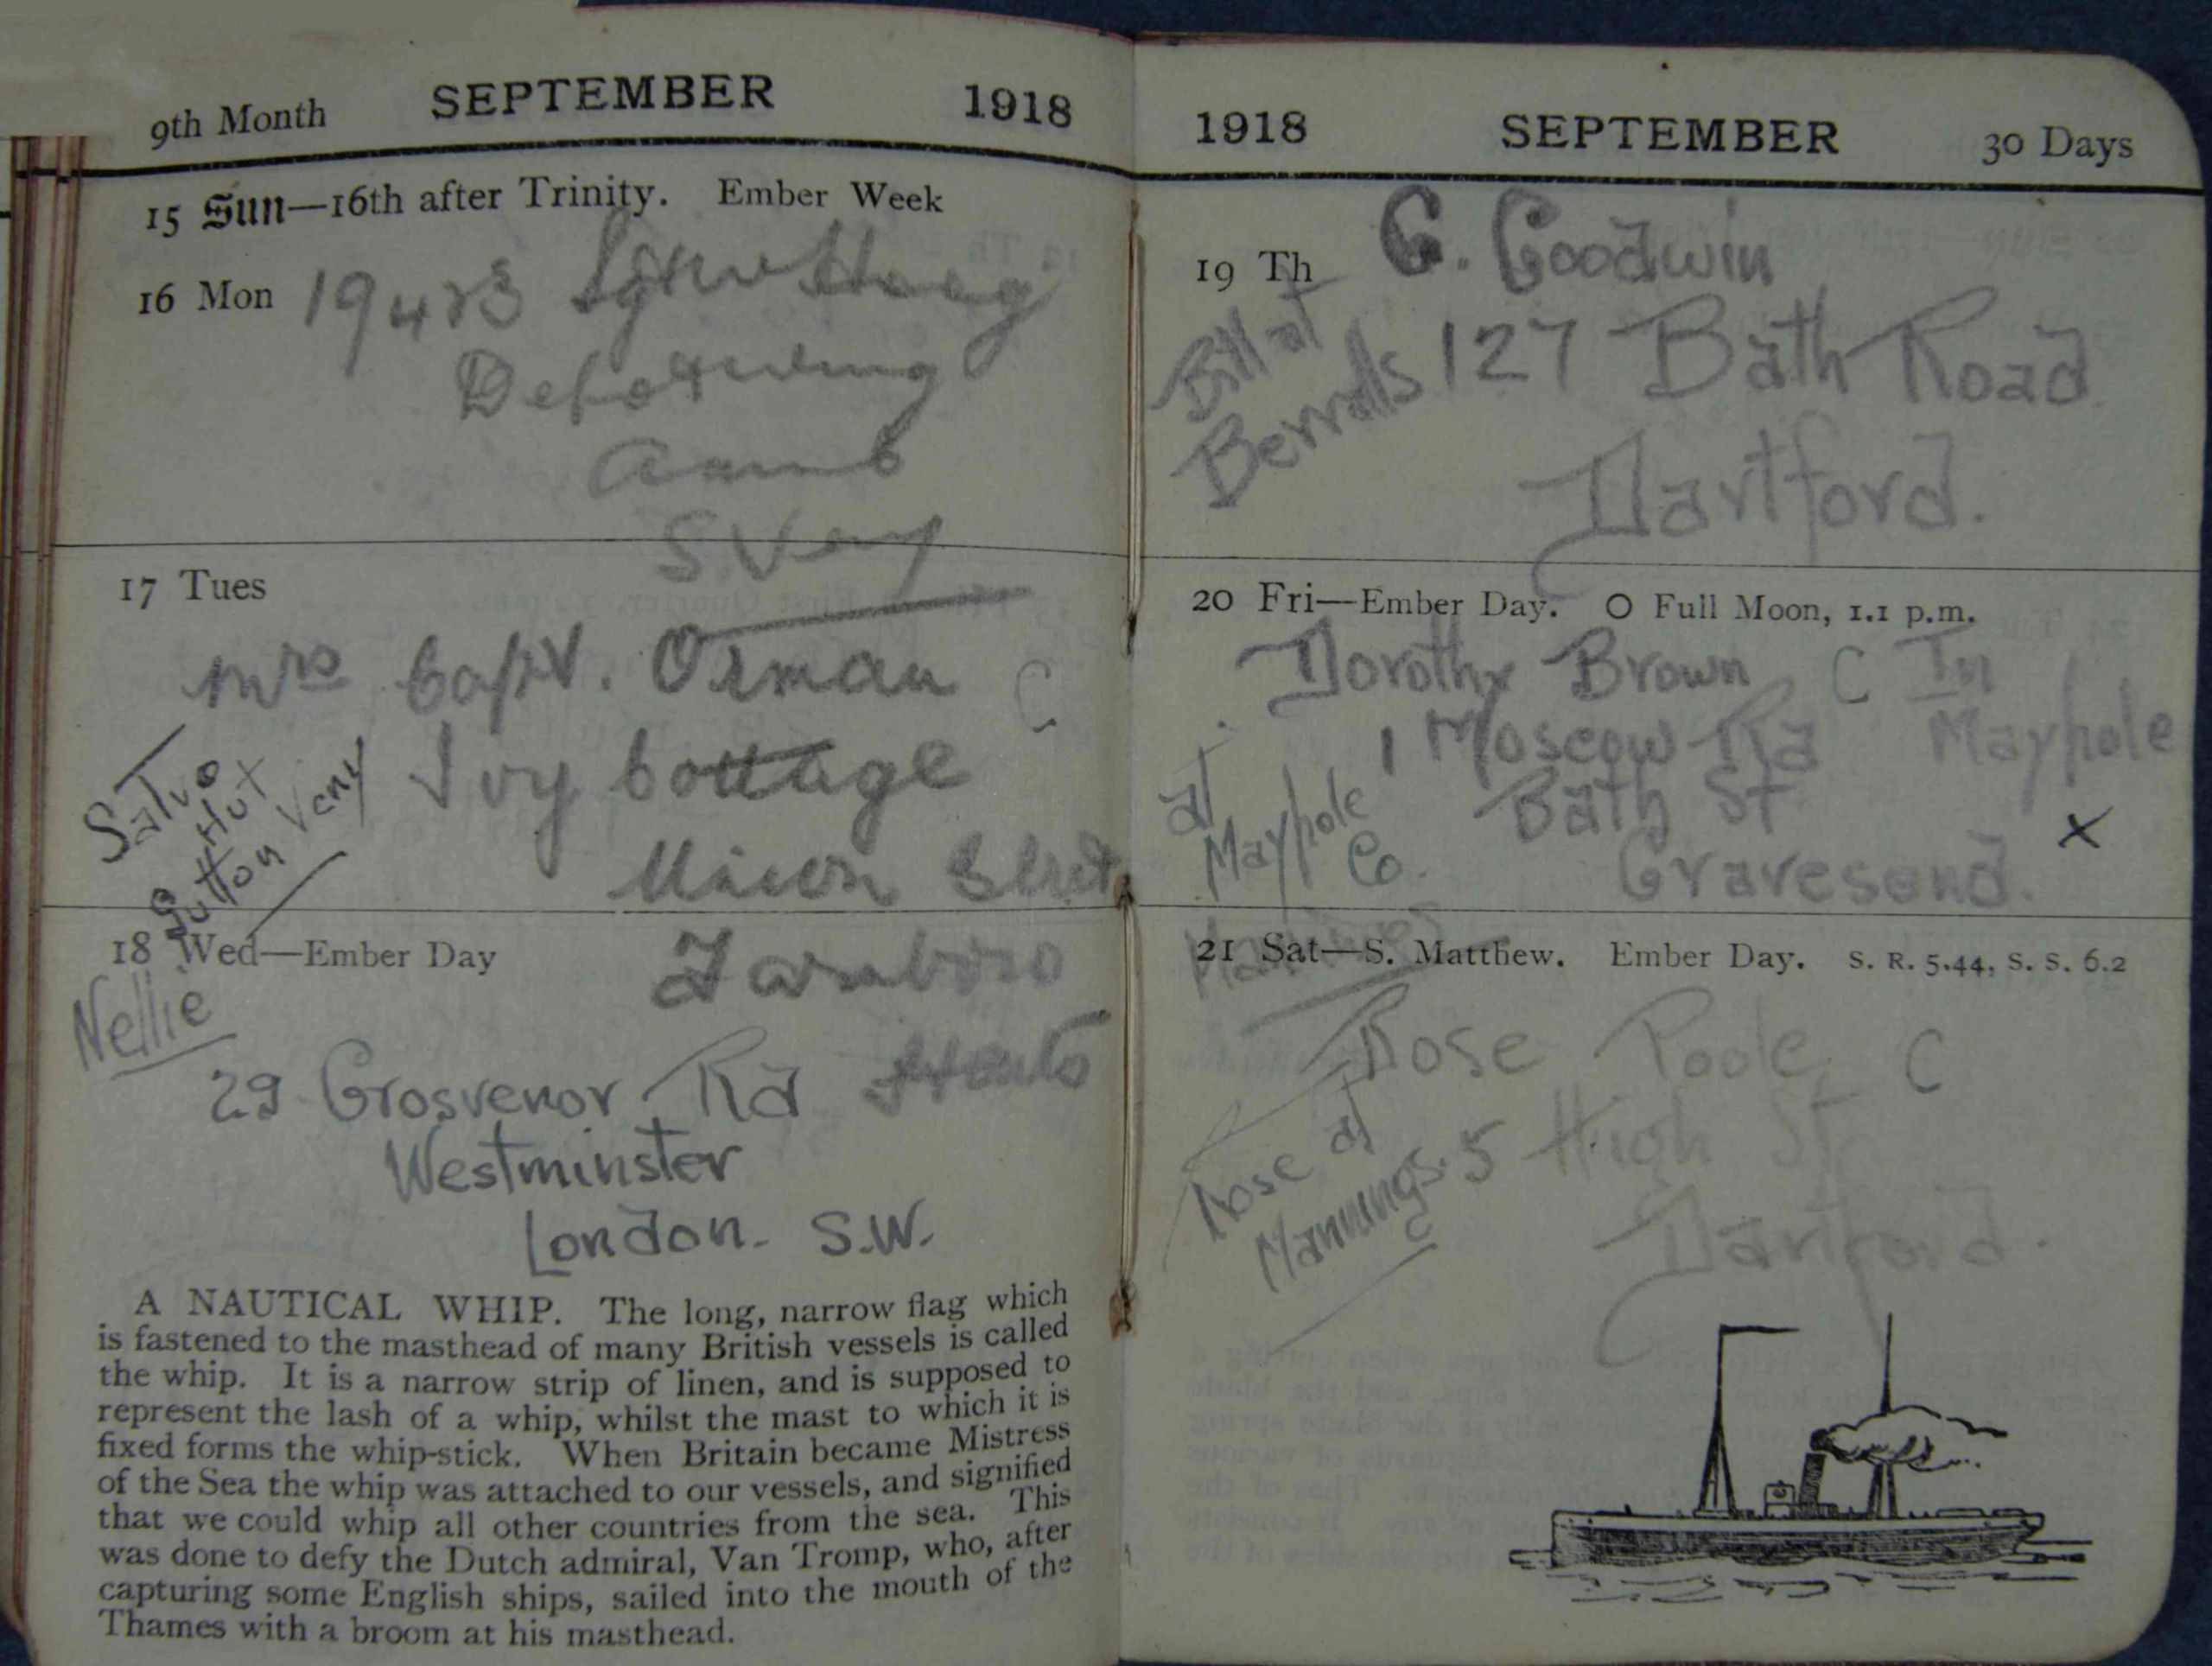 9th Month SEPTEMBER 1918
15 Sun—16th after Trinity. Ember Week
16 Mon
S Veny
17 Tues
Mrs Capt. Orman C
Ivy Cottage
Union Street
Salvo
Hut
Sutton Veny
18 Wed—Ember Day
Farnboro
Nellie
Hants
29 Grosvenor Rd
Westminster
London. S.W.
A NAUTICAL WHIP. The long, narrow flag which
is fastened to the masthead of many British vessels is called
the whip. It is a narrow strip of linen, and is supposed to
represent the lash of a whip, whilst the mast to which it is
fixed forms the whip-stick. When Britain became Mistress
of the Sea the whip was attached to our vessels, and signified
that we could whip all other countries from the sea. This
was done to defy the Dutch admiral, Van Tromp, who, after
capturing some English ships, sailed into the mouth of the
Thames with a broom at his masthead.
1918 SEPTEMBER 30 Days
19 Th G. Goodwin
Bill at
Berralls
127 Bath Road
Dartford.
20 Fri—Ember Day. O Full Moon, 1.1 p.m.
Dorothy Brown C In
1 Moscow Rd Mayphole
Bath St X
Gravesend.
at
Mayphole
Co.
21 Sat—S. Matthew. Ember Day. S. R. 5.44, S. S. 6.2
Rose Poole C
5 High St
Dartford.
Rose at
Mannings.